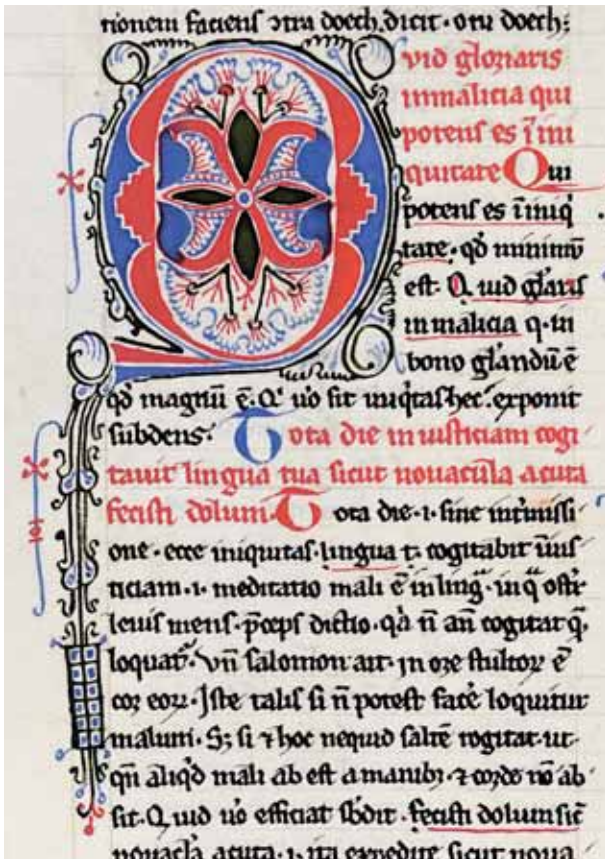 tionem faciens ɔtra doech. dicit · o tu doech:
Quid gloriaris
in malicia qui
potens es ī ini
quitate Qui
potens es ī iniq̇
tate · qđ minimū
est · Quid gl̄aris
in malicia q · in
bono gl̄andū ē
qđ magnū ē. Q' ů̇o sit iniq̇tas hec · exponit
subdens · Tota die iniusticiam cogi
tauit lingua tua sicut nouacula acuta
fecisti dolum · Tota die · i · sine int̄missi
one · ecce iniquitas · lingua t̄ · cogitabit īius
ticiam · i · meditatio mali ē in ling̃ · in q̃ ostr̄
leuis mens · p̄ceps dictio · q̃ n̄ an̄ cogitat q̄
loquat᷑ · Vn̄ salomon ait · in ore stultoꝝ ē
cor eoꝝ · Iste talis si n̄ potest fac̄e loquitur
malum · Sꝫ si ⁊ hoc nequid saltē cogitat · ut ·
qn̄ aliqđ mali ab est a manibꝫ · ⁊ corde nō ab
sit · Quid ůo efficiat sb̄dit · fecisti dolum sic̄
nouacl̄a acuta · i · ita expedite sicut noua